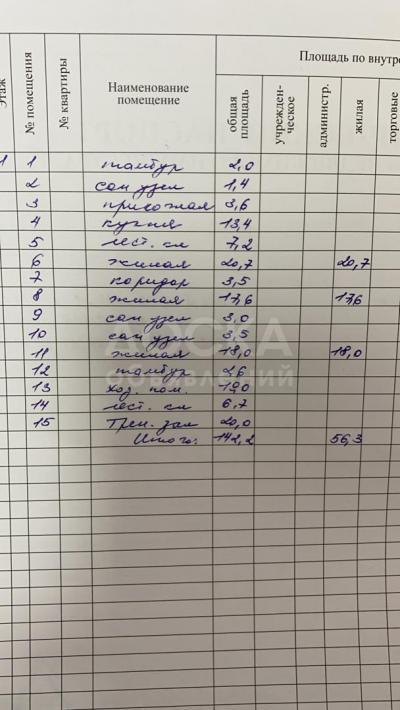 Этаж
№ помещения
№ квартиры
Наименование
помещение
Площадь по внутре
общая
площадь
учрежден-
ческое
администр.
жилая
торговые
1 1 тамбур 2,0
2 сан узел 1,4
3 прихожая 3,6
4 кухня 13,4
5 лест. кл 7,2
6 жилая 20,7 20,7
7 коридор 3,5
8 жилая 17,6 17,6
9 сан узел 3,0
10 сан узел 3,5
11 жилая 18,0 18,0
12 тамбур 2,6
13 хоз. пом. 19,0
14 лест. кл 6,7
15 Трен. зал 20,0
Итого: 142,2 56,3
ДОСКА
ОБЪЯВЛЕНИЙ